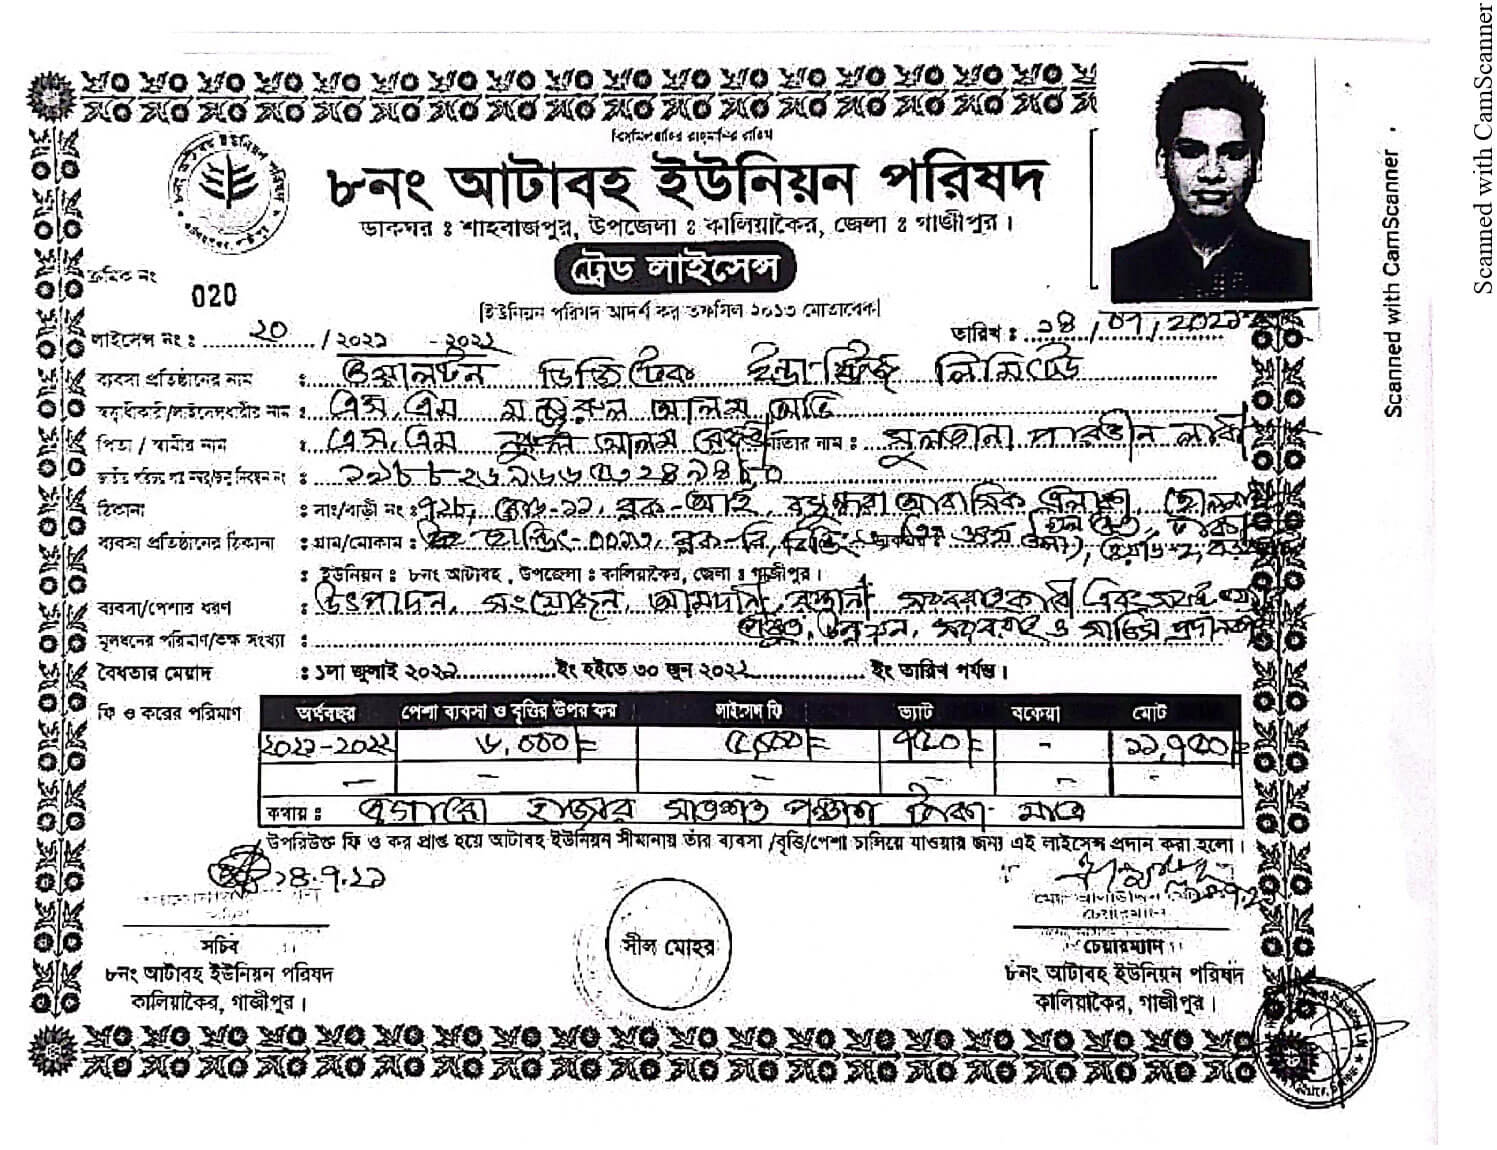 বিসমিল্লাহির রাহমানির রাহিম
৮নং আটাবহ ইউনিয়ন পরিষদ
ডাকঘর ঃ শাহবাজপুর, উপজেলা ঃ কালিয়াকৈর, জেলা ঃ গাজীপুর।
ট্রেড লাইসেন্স
ক্রমিক নং
020
[ইউনিয়ন পরিষদ আদর্শ কর তফসিল ২০১৩ মোতাবেক]
লাইসেন্স নং ঃ ২০ / ২০২১ - ২০২২ তারিখ ঃ ১৪/০৭/২০২১
ব্যবসা প্রতিষ্ঠানের নাম ঃ ওয়ালটন ডিজিটেক ইন্ডাস্ট্রিজ লিমিটেড
স্বত্বাধিকারী/লাইসেন্সধারীর নাম ঃ এস, এম মঞ্জুরুল আলম অভি
পিতা / স্বামীর নাম ঃ এস, এম নুরুল আলম রেজভী মাতার নাম ঃ সুলতানা পারভীন
জাতীয় পরিচয় পত্র নম্বর/জন্ম নিবন্ধন নং ঃ
ঠিকানা ঃ সাং/বাড়ী নং ঃ ৭১৮, রোড-১১, ব্লক-আই, বসুন্ধরা আবাসিক এলাকা, ঢাকা
ব্যবসা প্রতিষ্ঠানের ঠিকানা ঃ গ্রাম/মোকাম ঃ হোল্ডিং-০০১৩, ব্লক-বি,
ঃ ইউনিয়ন ঃ ৮নং আটাবহ, উপজেলা ঃ কালিয়াকৈর, জেলা ঃ গাজীপুর।
ব্যবসা/পেশার ধরণ ঃ উৎপাদন, সংযোজন, আমদানী, রপ্তানী সরবরাহকারী এবং
প্রস্তুত, উন্নয়ন, সরবরাহ ও সার্ভিস
মূলধনের পরিমাণ/কক্ষ সংখ্যা ঃ
বৈধতার মেয়াদ ঃ ১লা জুলাই ২০২১ ইং হইতে ৩০ জুন ২০২২ ইং তারিখ পর্যন্ত।
ফি ও করের পরিমাণ
অর্থবছর পেশা ব্যবসা ও বৃত্তির উপর কর লাইসেন্স ফি ভ্যাট বকেয়া মোট
২০২১-২০২২ ৬,০০০/= ৫,০০০/= ৭৫০/= - ১১,৭৫০/=
- - - - - -
কথায় ঃ এগারো হাজার সাতশত পঞ্চাশ টাকা মাত্র
উপরিউক্ত ফি ও কর প্রাপ্ত হয়ে আটাবহ ইউনিয়ন সীমানায় তাঁর ব্যবসা /বৃত্তি/পেশা চালিয়ে যাওয়ার জন্য এই লাইসেন্স প্রদান করা হলো।
১৪.৭.২১
চেয়ারম্যান
সচিব
৮নং আটাবহ ইউনিয়ন পরিষদ
কালিয়াকৈর, গাজীপুর।
সীল মোহর
চেয়ারম্যান
৮নং আটাবহ ইউনিয়ন পরিষদ
কালিয়াকৈর, গাজীপুর।
Scanned with CamScanner
Scanned with CamScanner